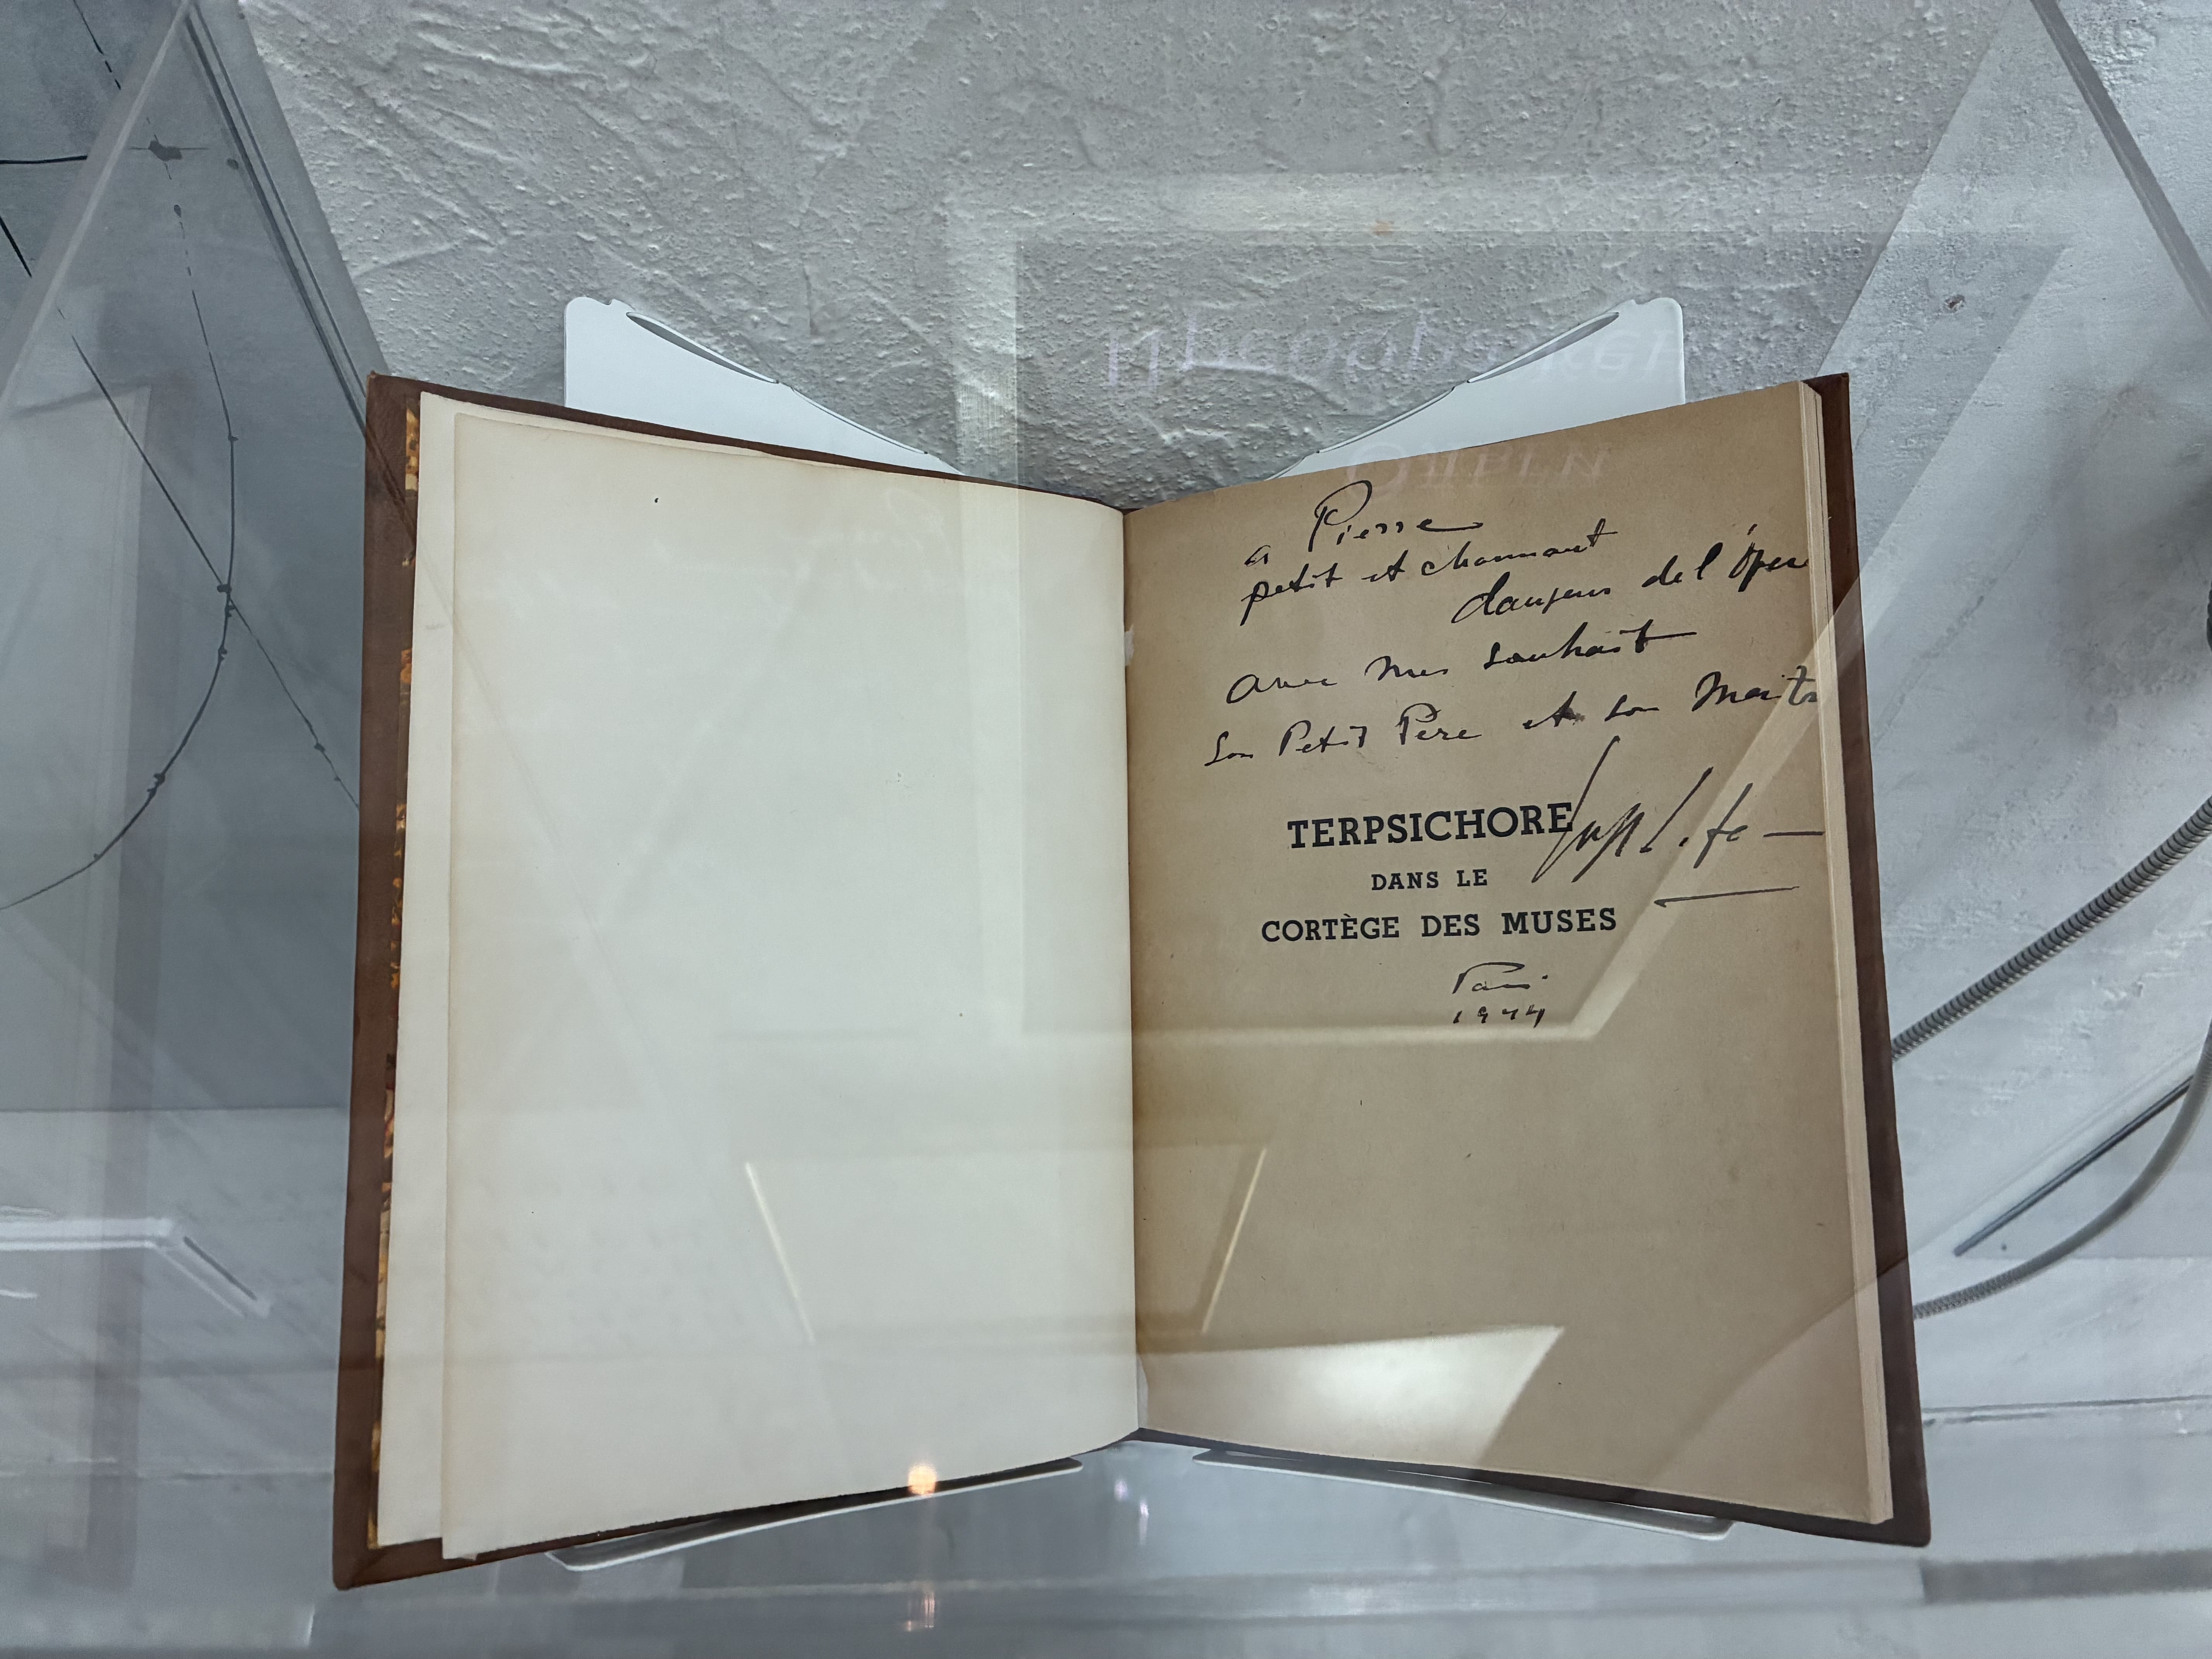 a Pierre
petit et charmant
danseur de l'Opera
avec mes souhait
Son Petit Père et son Maitre
Serge Lifar
TERPSICHORE
DANS LE
CORTÈGE DES MUSES
Paris
1944